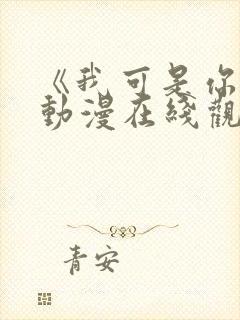 《我可是你
動漫在綫觀
青安